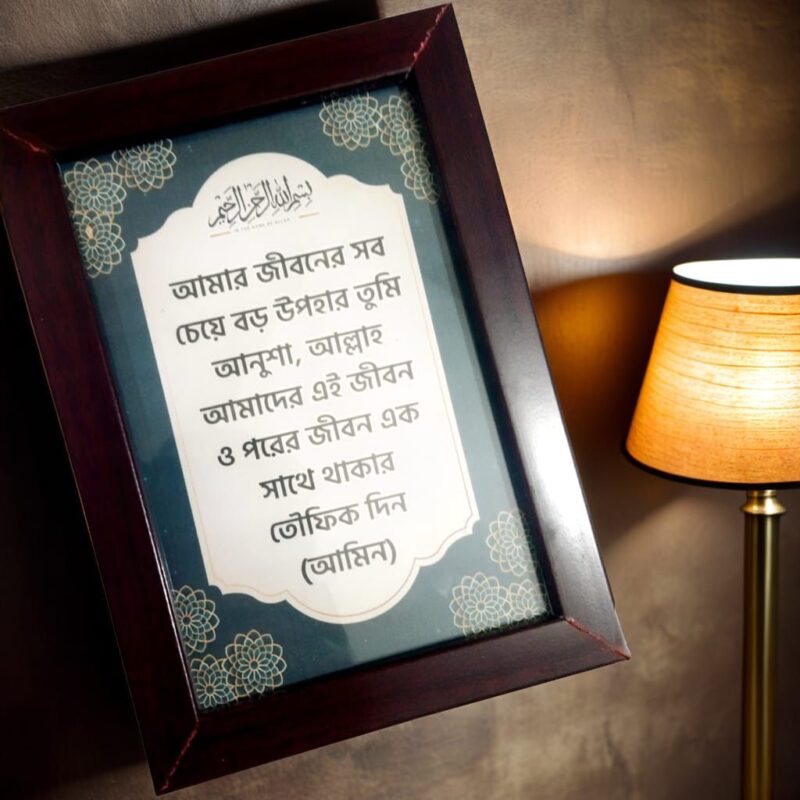 بسم الله الرحمن الرحيم
IN THE NAME OF ALLAH
আমার জীবনের সব
চেয়ে বড় উপহার তুমি
আনুশা, আল্লাহ
আমাদের এই জীবন
ও পরের জীবন এক
সাথে থাকার
তৌফিক দিন
(আমিন)